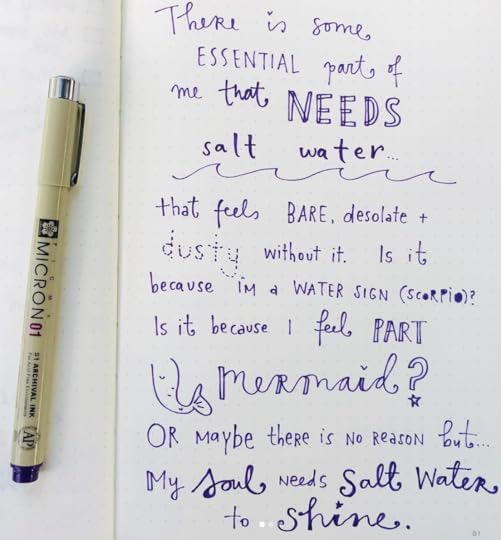 There is some
ESSENTIAL part of
me that NEEDS
salt water...
that feels BARE, desolate +
dusty without it. Is it
because I'm a WATER SIGN (SCORPIO)?
Is it because I feel PART
Mermaid?
OR Maybe there is NO REASON but...
My Soul NEEDS Salt Water
to shine.
PIGMA
MICRON 01
01 ARCHIVAL INK
For Acid Free Environments
AP